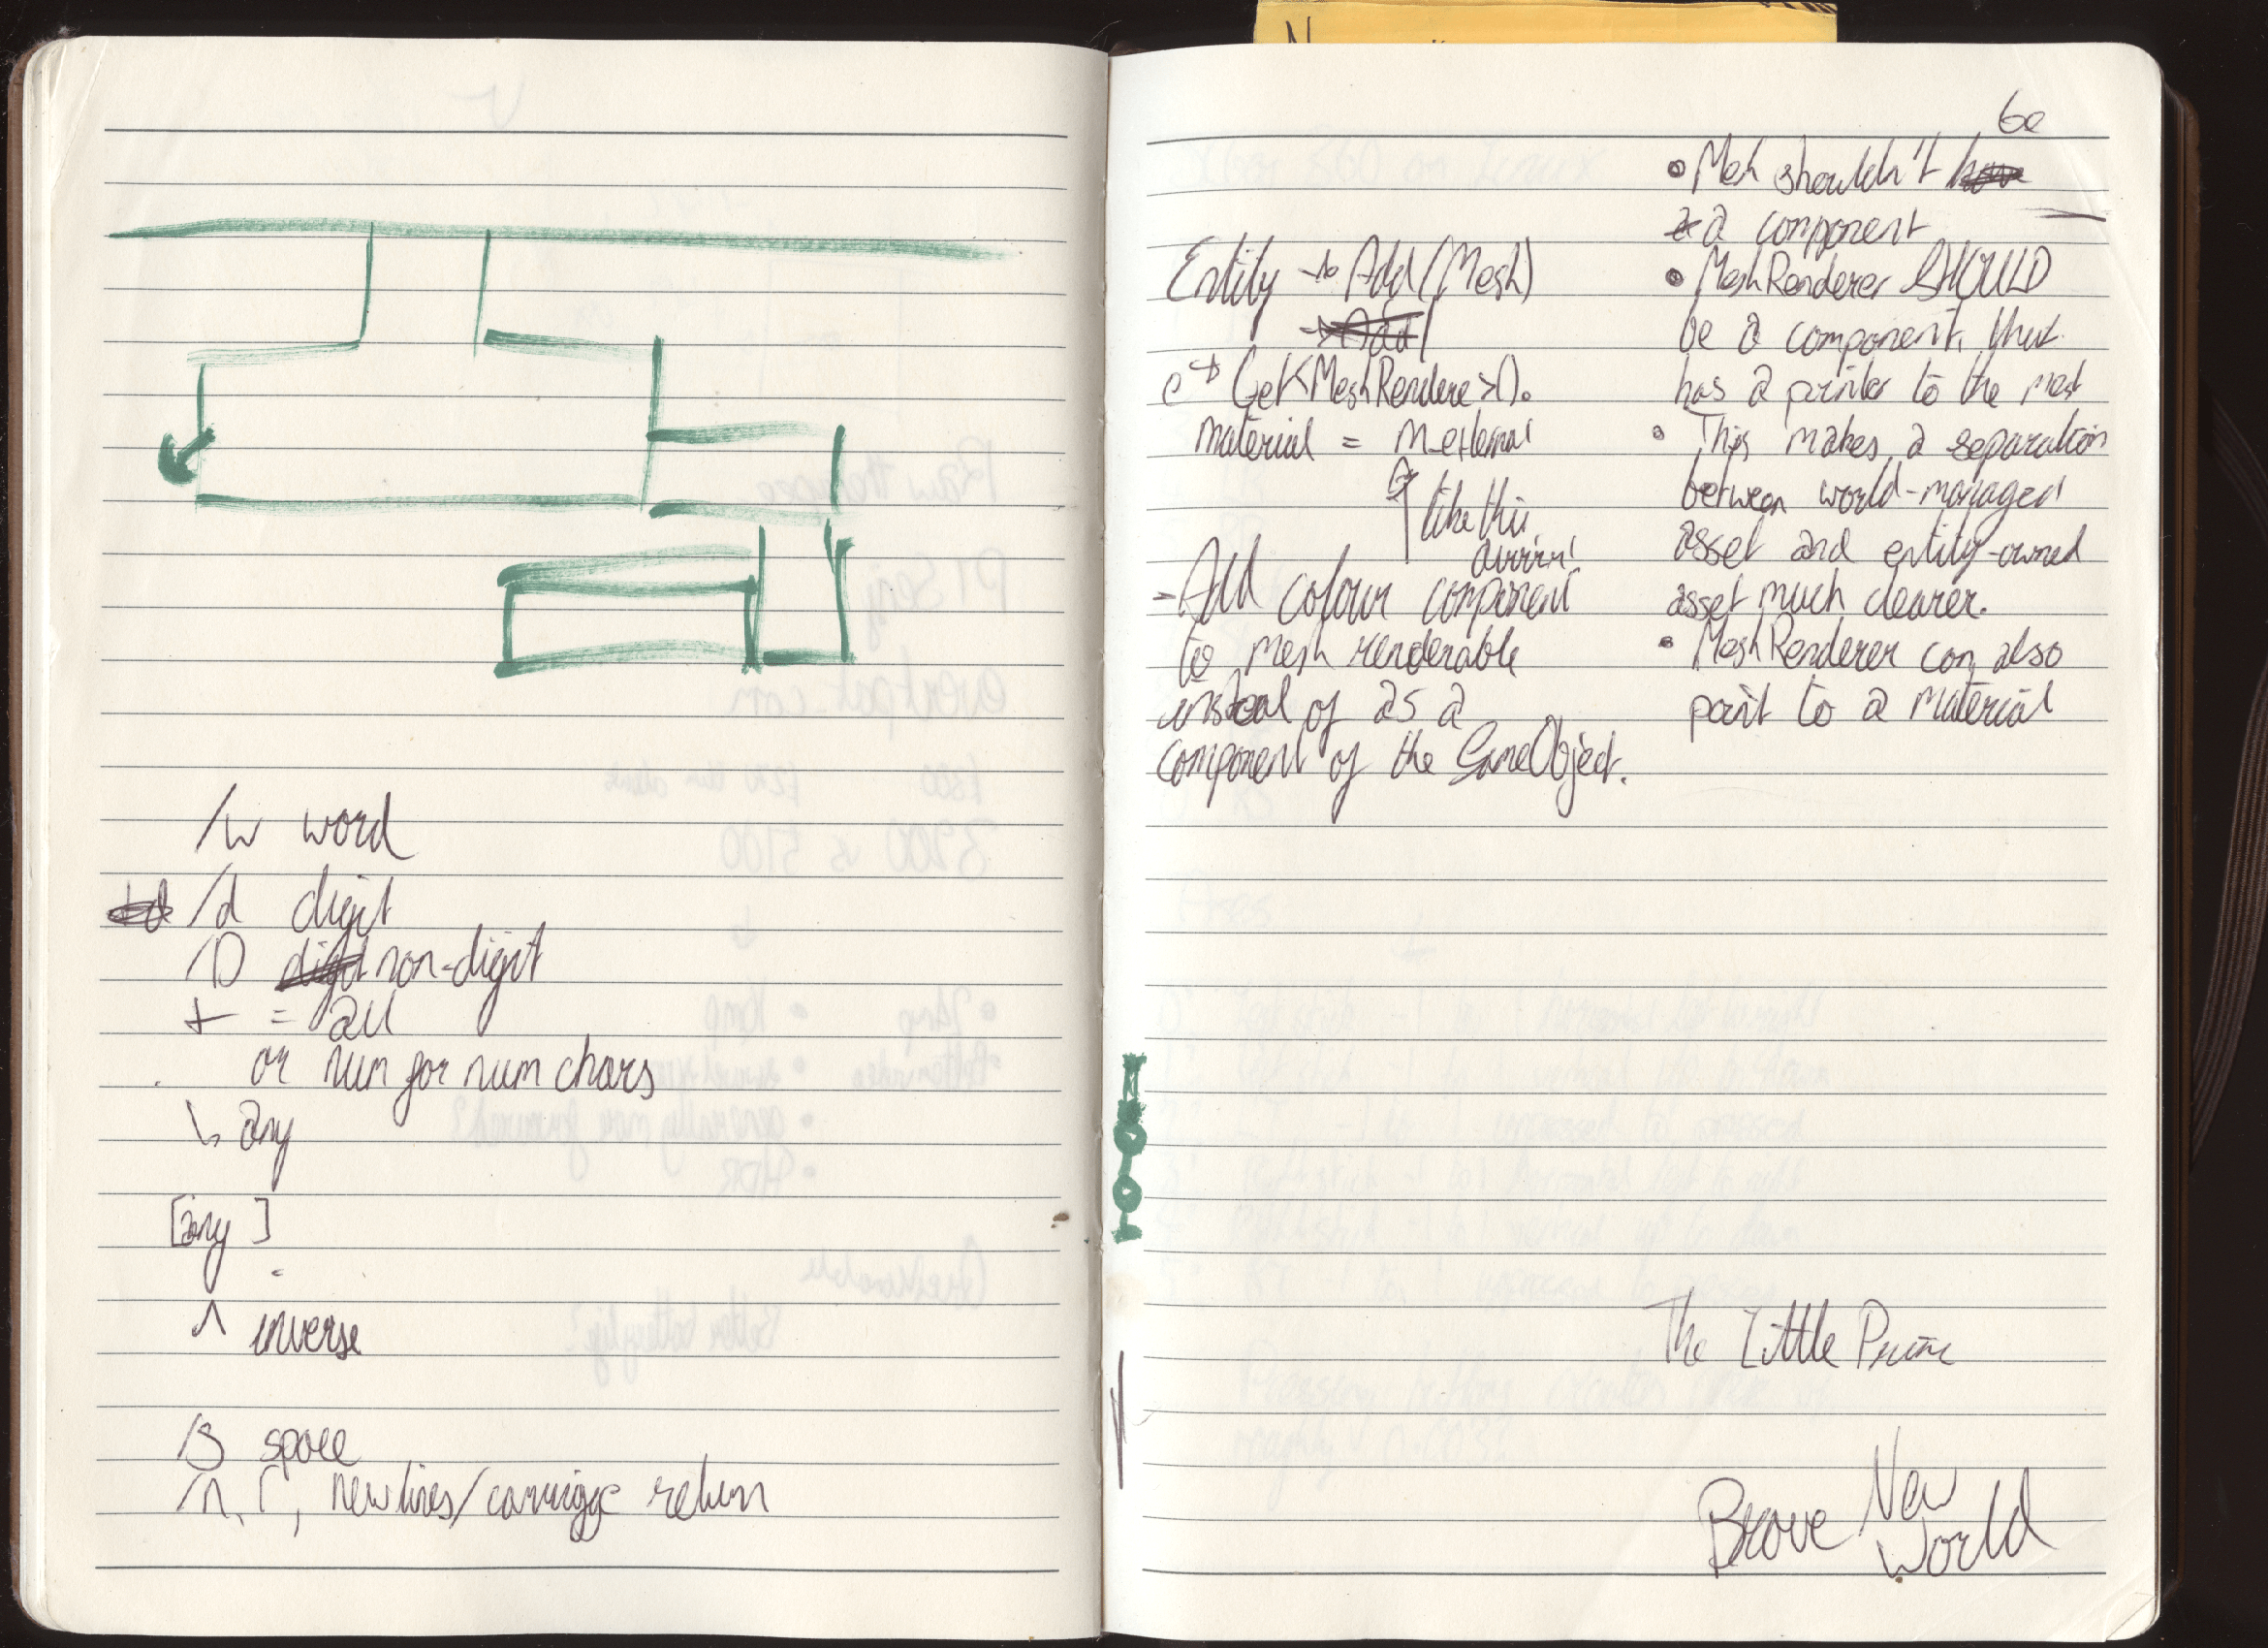 /w word
/d digit
/D digit non-digit
+ = all
or num for num chars
↳ any
[any]
^ inverse
/s space
/n, r, newlines/carriage return
Entity → Add(Mesh)
→ Add(
e → Get<MeshRendere>().
material = m_external
like this
- Add colour component
to mesh renderable
instead of as a
component of the GameObject.
be
• Mesh shouldn't have
a component
• MeshRenderer SHOULD
be a component, that
has a pointer to the mesh
• This makes a separation
between world-managed
asset and entity-owned
asset much clearer.
• MeshRenderer can also
point to a material
The Little Prince
Brave New
World